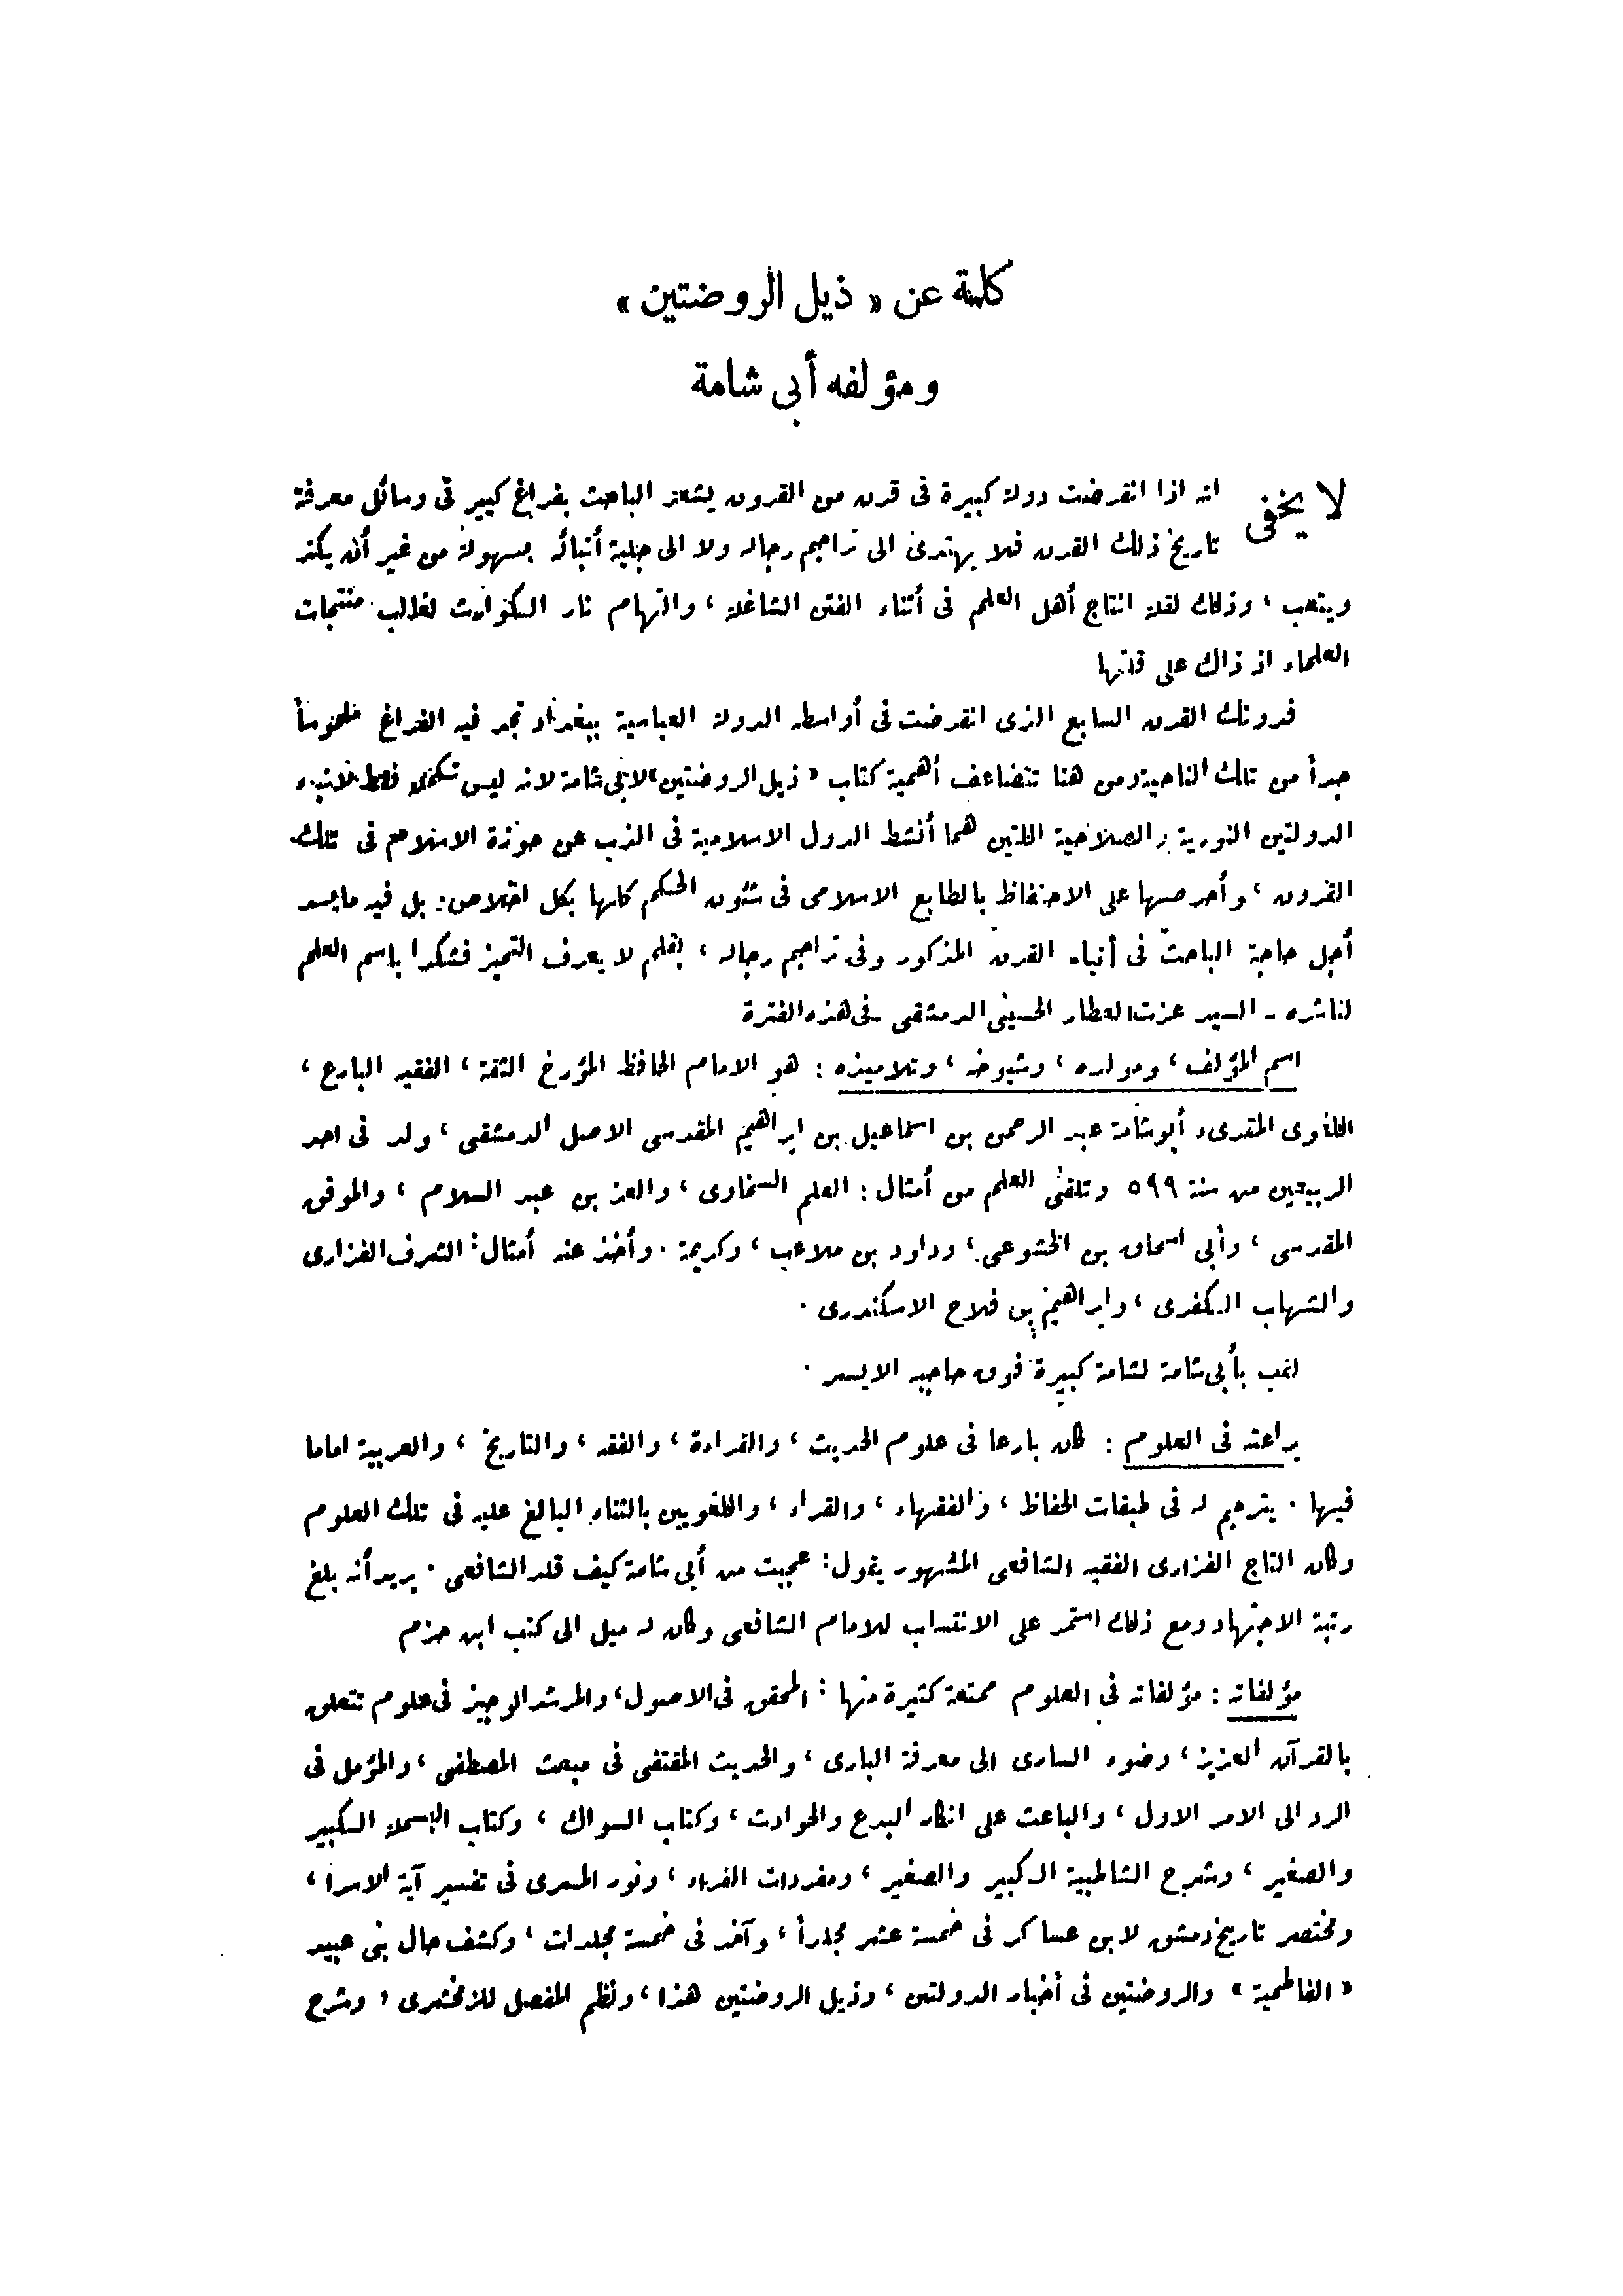 كلمة عن « ذيل الروضتين »
ومؤلفه أبي شامة
لا يخفى انه اذا انقرضت دولة كبيرة فى قرن من القرون يشعر الباحث بفراغ كبير فى وسائل معرفة
تاريخ ذلك القرن فلا يهتدى الى تراجم رجاله ولا الى جلية أنبائه بسهولة من غير أن يكد
ويتعب ، وذلك لقلة انتاج أهل العلم فى أثناء الفتن الشاغلة ، والتهام نار الكوارث لغالب منتجات
العلماء اذ ذاك على قلتها
فدونك القرن السابع الذى انقرضت فى أواسطه الدولة العباسية ببغداد تجد فيه الفراغ ملموساً
جداً من تلك الناحية ومن هنا تتضاعف أهمية كتاب « ذيل الروضتين » لابى شامة لانه ليس فقط لانباء
الدولتين النورية والصلاحية اللتين هما أنشط الدول الاسلامية فى الذب عن حوزة الاسلام فى تلك
القرون ، وأحرصها على الاحتفاظ بالطابع الاسلامى فى شئون الحكم كلها بكل اخلاص : بل فيه ما يسد
أجل حاجة الباحث فى أنباء القرن المذكور وفى تراجم رجاله ، بقلم لا يعرف التحيز فشكرا باسم العلم
لناشره - السيد عزت العطار الحسينى الدمشقى - فى هذه الفترة
اسم المؤلف ، ومولده ، وشيوخه ، وتلاميذه : هو الامام الحافظ المؤرخ الثقة ، الفقيه البارع ،
اللغوى المقرىء أبو شامة عبد الرحمن بن اسماعيل بن ابراهيم المقدسى الاصل الدمشقى ، ولد فى احد
الربيعين من سنة ٥٩٩ وتلقى العلم من أمثال : العلم السخاوى ، والعز بن عبد السلام ، والموفق
المقدسى ، وأبى اسحاق بن الخشوعى ، وداود بن ملاعب ، وكريمة . وأخذ عنه أمثال : الشرف الفزارى
والشهاب الكفرى ، وابراهيم بن فلاح الاسكندرى .
لقب بأبى شامة لشامة كبيرة فوق حاجبه الايسر .
براعته فى العلوم : كان بارعا فى علوم الحديث ، والقراءة ، والفقه ، والتاريخ ، والعربية اماما
فيها . يترجم له فى طبقات الحفاظ ، والفقهاء ، والقراء ، واللغويين بالثناء البالغ عليه فى تلك العلوم
وكان التاج الفزارى الفقيه الشافعى المشهور يقول : عجبت من أبى شامة كيف قلد الشافعى . يريد أنه بلغ
رتبة الاجتهاد ومع ذلك استمر على الانتساب للامام الشافعى وكان له ميل الى كتب ابن حزم
مؤلفاته : مؤلفاته فى العلوم ممتعة كثيرة منها : المحقق فى الاصول ، والمرشد الوجيز فى علوم تتعلق
بالقرآن العزيز ، وضوء السارى الى معرفة البارى ، والحديث المقتفى فى مبعث المصطفى ، والمؤمل فى
الرد الى الامر الاول ، والباعث على انكار البدع والحوادث ، وكتاب السواك ، وكتاب البسملة الكبير
والصغير ، وشرح الشاطبية الكبير والصغير ، ومفردات القراء ، ونور المسرى فى تفسير آية الاسرا ،
ومختصر تاريخ دمشق لابن عساكر فى خمسة عشر مجلداً ، وآخر فى خمسة مجلدات ، وكشف حال بنى عبيد
« الفاطمية » والروضتين فى أخبار الدولتين ، وذيل الروضتين هذا ، ونظم المفصل للزمخشرى ، وشرح